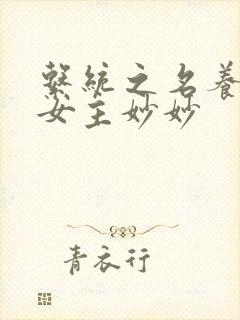 繫統之名養
女主妙妙
青衣行